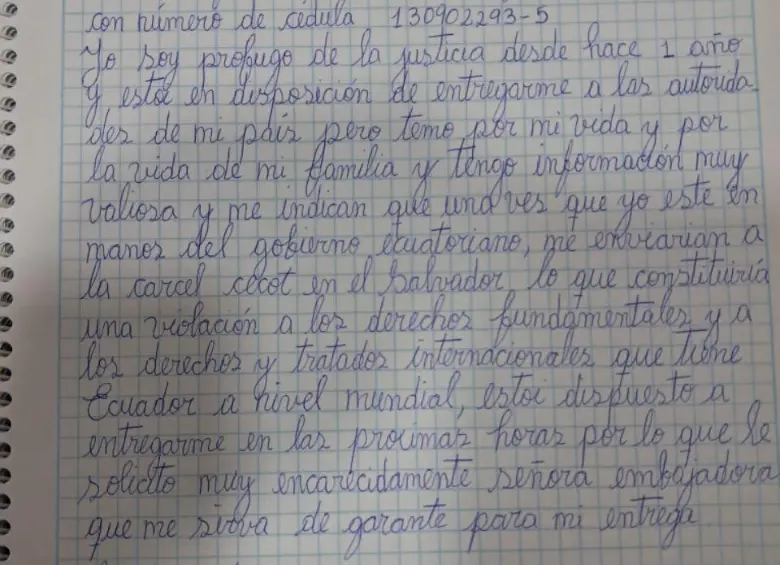 con número de cédula 130902293-5
Yo soy profugo de la justicia desde hace 1 año
y estoi en disposición de entregarme a las autorida
des de mi país pero temo por mi vida y por
la vida de mi familia y tengo información muy
valiosa y me indican que una ves que yo este en
manos del gobierno ecuatoriano, me enviarian a
la carcel cecot en el Salvador, lo que constituiría
una violación a los derechos fundamentales y a
los derechos y tratados internacionales que tiene
Ecuador a nivel mundial, estoi dispuesto a
entregarme en las proximas horas por lo que le
solicito muy encarecidamente señora embajadora
que me sirva de garante para mi entrega